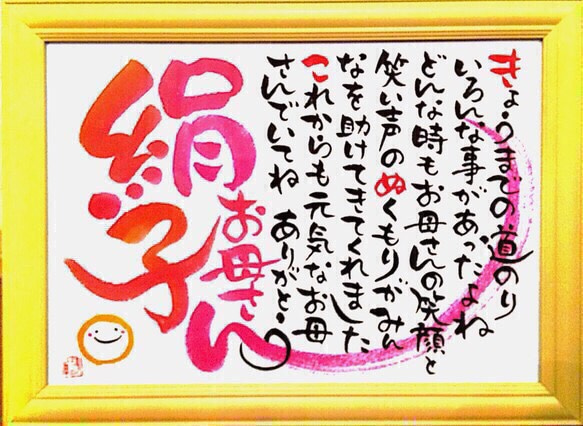 きょうまでの道のり
いろんな事があったよね
どんな時もお母さんの笑顔と
笑い声のぬくもりがみん
なを助けてきてくれました
これからも元気なお母
さんでいてね ありがとう
絹子
お母さん